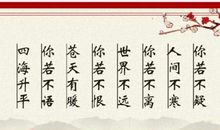 你若不疑
人间不寒
你若不离
世界不远
你若不恨
苍天有暖
你若不语
四海升平